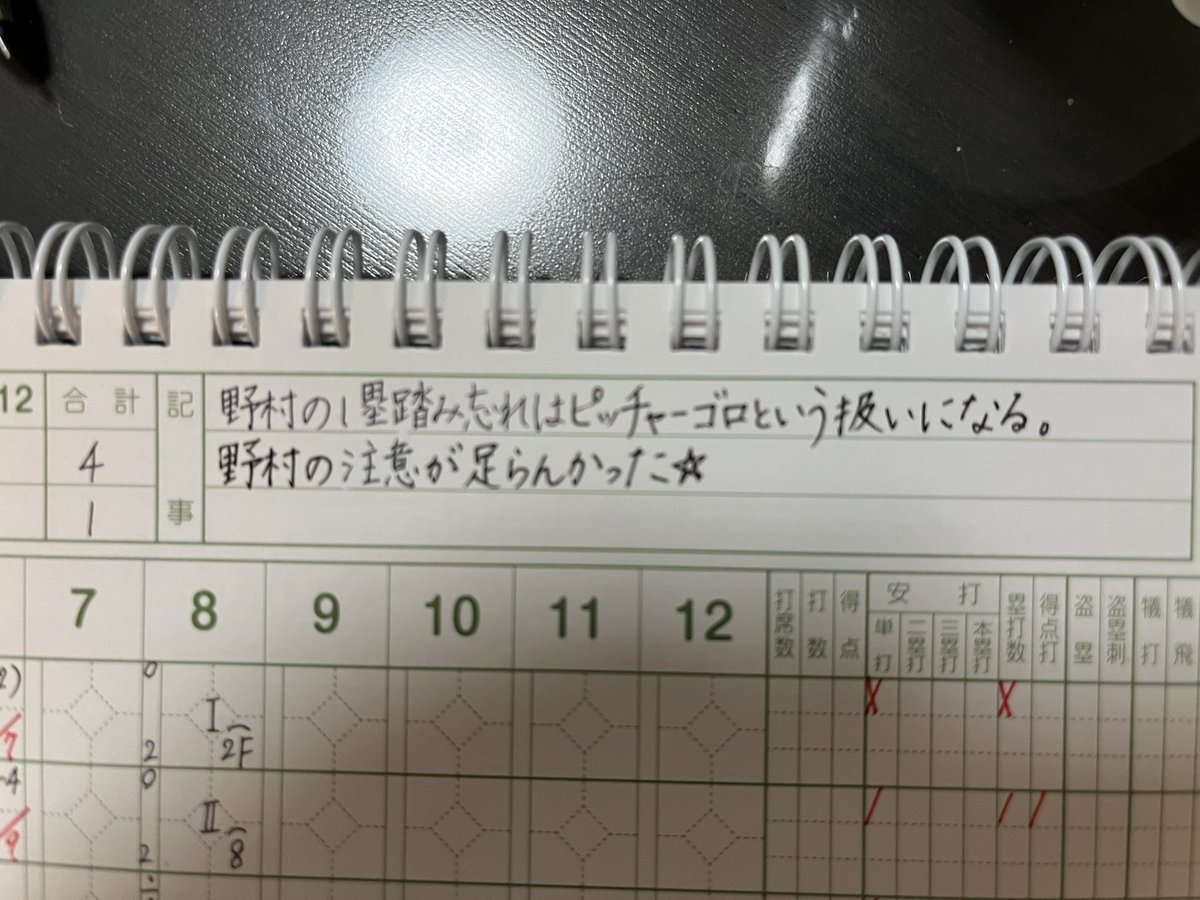 12 合計 記事
野村の1塁踏み忘れはピッチャーゴロという扱いになる。
4
野村の注意が足らんかった☆
1
7 8 9 10 11 12 打席数 打数 得点 安打 単打 二塁打 三塁打 本塁打 塁打数 得点打 盗塁 盗塁刺 犠打 犠飛
2) 0 I X X
/7 2 2F
-4 0 II / / /
/9 2 8